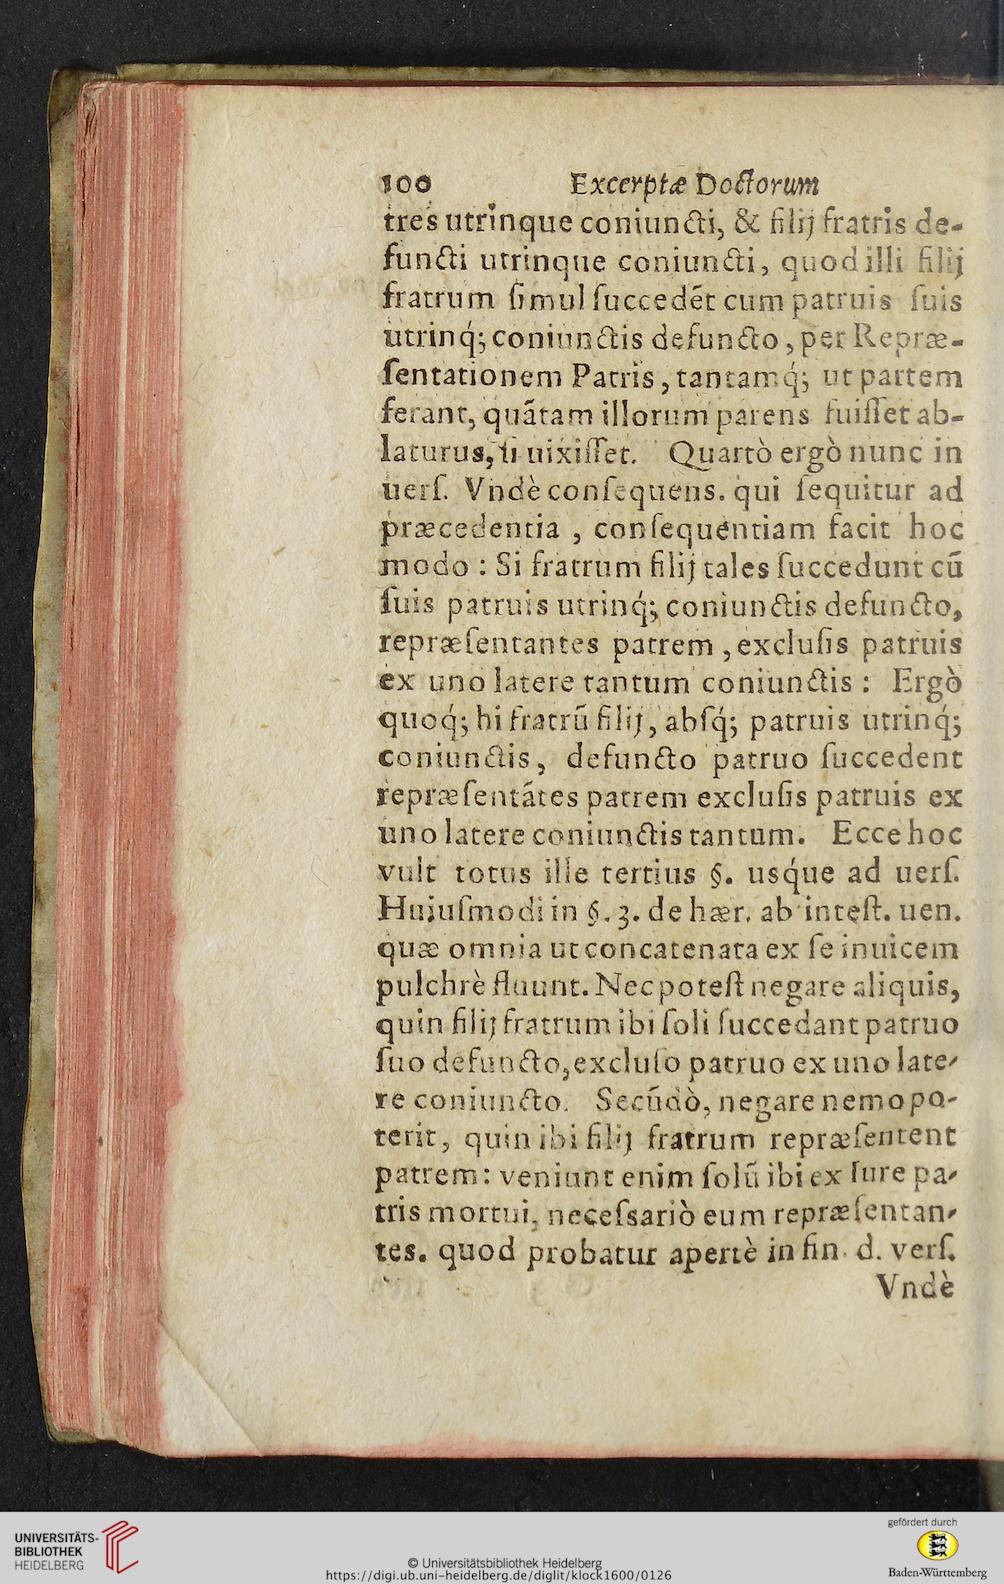 100 Excerptæ Doctorum
tres utrinque coniuncti, & filij fratris de-
functi utrinque coniuncti, quod illi filij
fratrum ſimul ſuccedẽt cum patruis ſuis
utrinq́; coniunctis defuncto, per Repræ-
ſentationem Patris, tantamq́; ut partem
ferant, quãtam illorum parens fuiſſet ab-
laturus, ſi uixiſſet. Quartò ergò nunc in
uerſ. Vndè conſequens. qui ſequitur ad
præcedentia, conſequentiam facit hoc
modo: Si fratrum filij tales ſuccedunt cũ
ſuis patruis utrinq́; coniunctis defuncto,
repræſentantes patrem, excluſis patruis
ex uno latere tantum coniunctis: Ergò
quoq́; hi fratrũ filij, abſq́; patruis utrinq́;
coniunctis, defuncto patruo ſuccedent
repræſentãtes patrem excluſis patruis ex
uno latere coniunctis tantum. Ecce hoc
vult totus ille tertius §. usq́ue ad uerſ.
Huiuſmodi in §. 3. de hær. ab inteſt. uen.
quæ omnia ut concatenata ex ſe inuicem
pulchrè fluunt. Nec poteſt negare aliquis,
quin filij fratrum ibi ſoli ſuccedant patruo
ſuo defuncto, excluſo patruo ex uno late-
re coniuncto. Secũdò, negare nemo po-
terit, quin ibi filij fratrum repræſentent
patrem: veniunt enim ſolũ ibi ex Iure pa-
tris mortui, neceſsariò eum repræſentan-
tes. quod probatur apertè in fin. d. verſ.
Vndè
UNIVERSITÄTS-
BIBLIOTHEK
HEIDELBERG
© Universitätsbibliothek Heidelberg
https://digi.ub.uni-heidelberg.de/diglit/klock1600/0126
gefördert durch
Baden-Württemberg